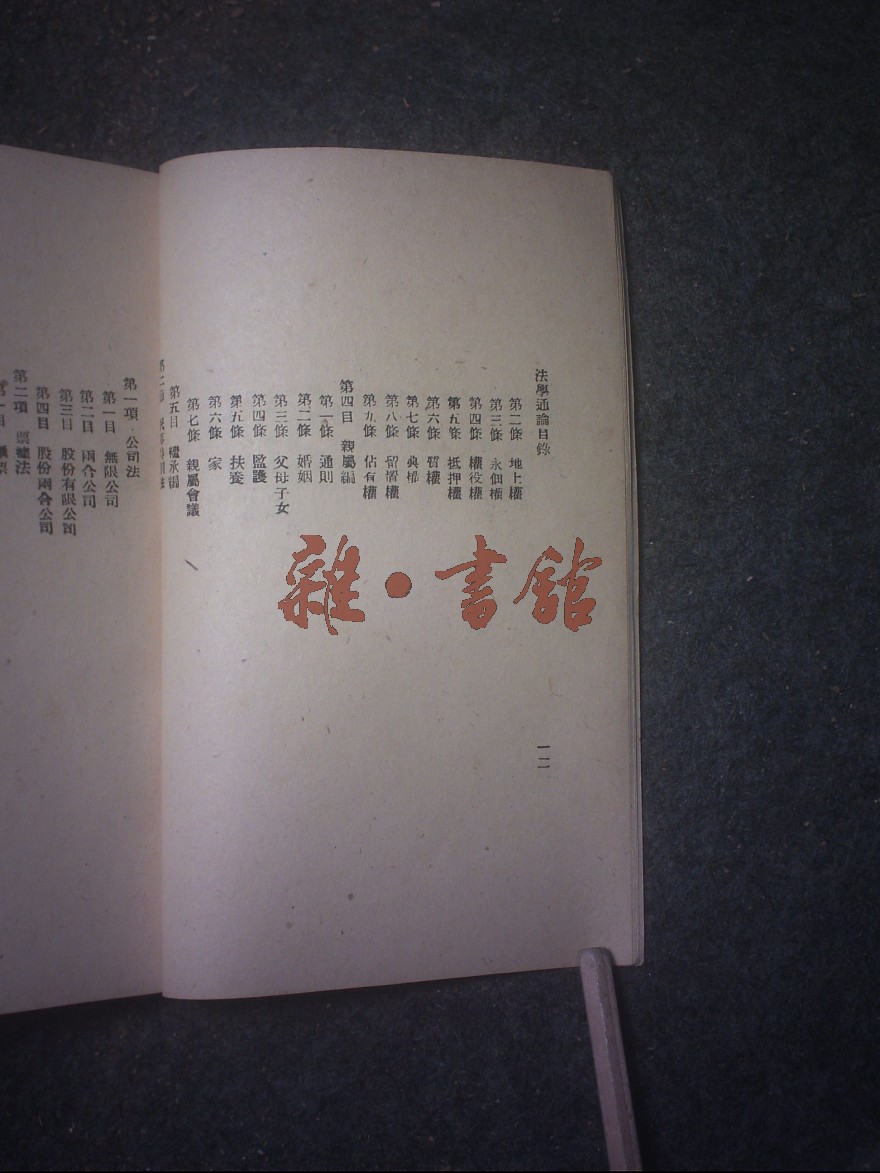 法學通論目錄
第二條 地上權
第三條 永佃權
第四條 權役權
第五條 抵押權
第六條 質權
第七條 典權
第八條 留置權
第九條 佔有權
第四目 親屬編
第一條 通則
第二條 婚姻
第三條 父母子女
第四條 監護
第五條 扶養
第六條 家
第七條 親屬會議
第五目 繼承編
一二
第一項 公司法
第一目 無限公司
第二目 兩合公司
第三目 股份有限公司
第四目 股份兩合公司
第二項 票據法
雜·書館